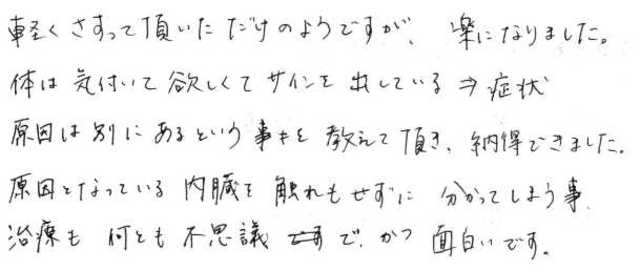 軽くさすって頂いただけのようですが、楽になりました。
体は気付いて欲しくてサインを出している⇒症状
原因は別にあるという事を教えて頂き、納得できました。
原因となっている内臓を触れもせずに分かってしまう事、
治療も何とも不思議で、かつ面白いです。